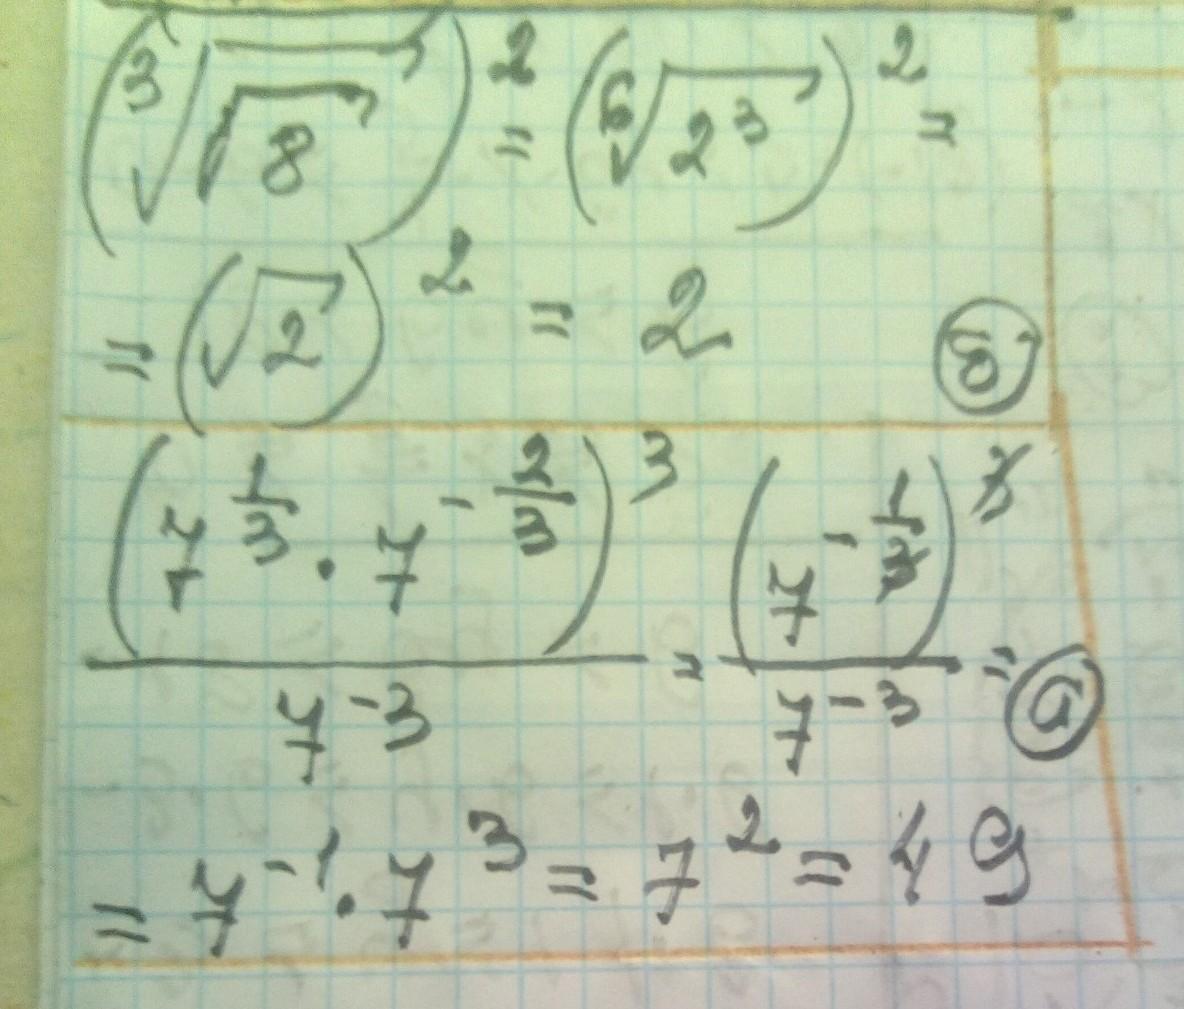 (∛√8)² = (⁶√2³)² =
= (√2)² = 2 б
(7^(1/3) · 7^(-2/3))³ / 7^(-3) = (7^(-1/3))³ / 7^(-3) = а
= 7^(-1) · 7³ = 7² = 49